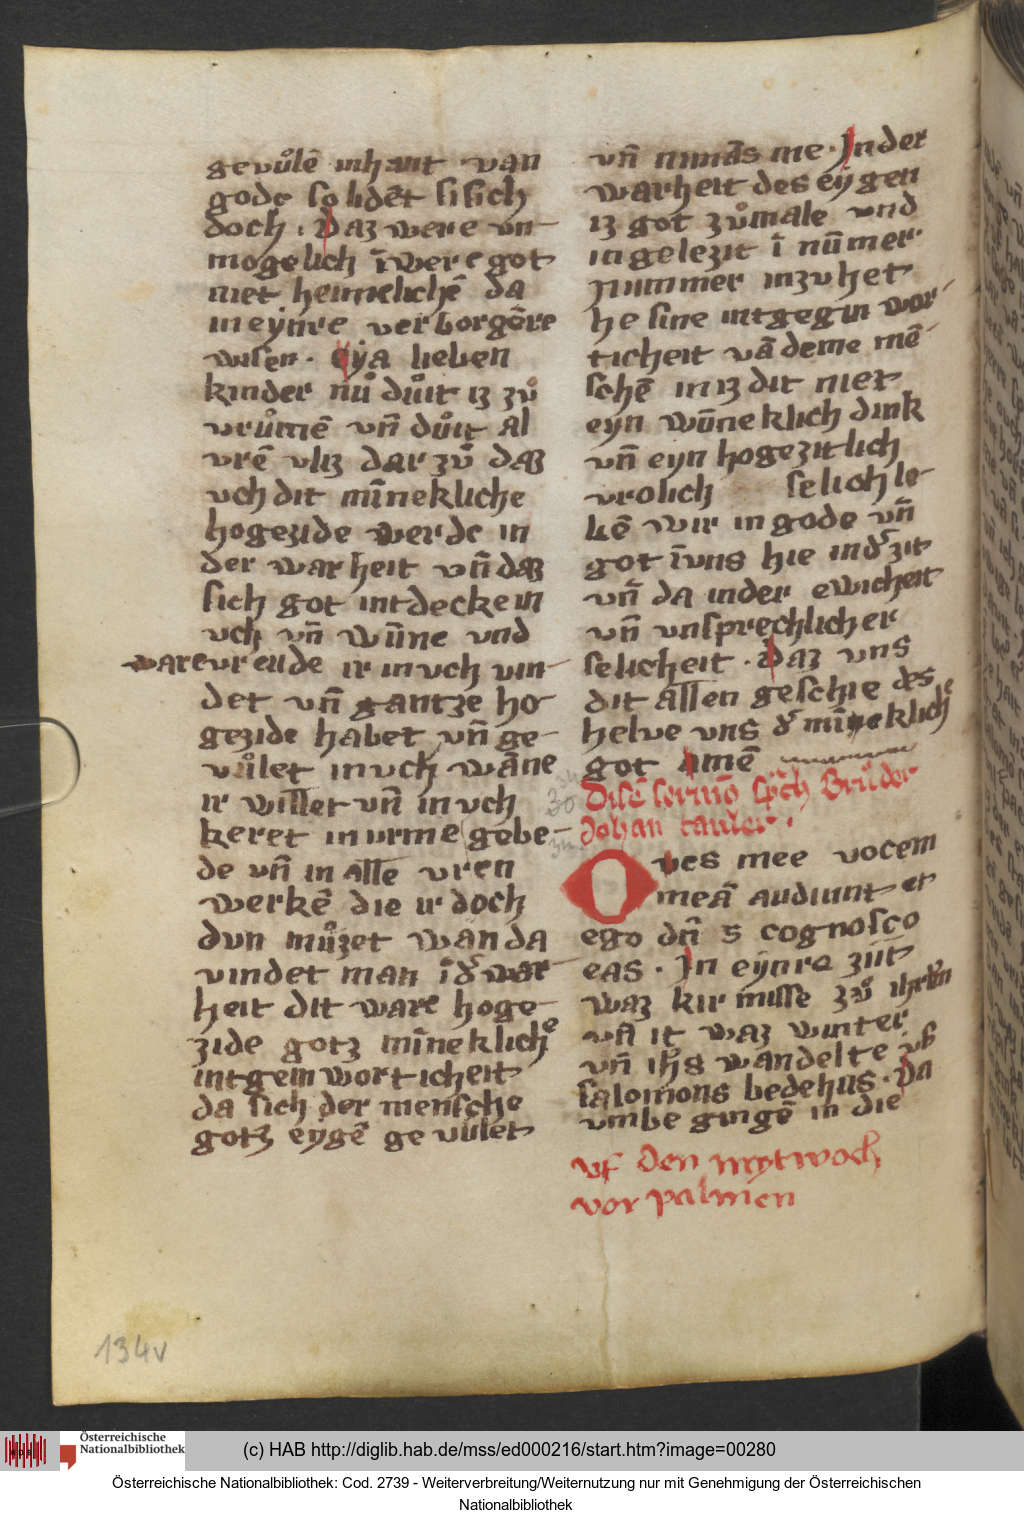 gevuͦlē inhant · van
gode so lidēt si sich
doch · Daz were vn-
mogelich ī were got
niet heimelichē da
in eynre verborgēre
wisen · Eya lieben
kinder nuͦ duͦit iz zuͦ
vruͦmē vn̄ duͦit al
vrē vliz dar zuͦ daz
vch dit mīnekliche
hogezide werde in
der warheit vn̄ daz
sich got intdecke in
vch vn̄ wūne vnd
ware vreude ir in vch vin-
det vn̄ gantze ho-
gezide habet vn̄ ge-
vuͦlet in vch wāne
ir willet vn̄ in vch
keret in urme gebe-
de vn̄ in alle vren
werkē die ir doch
dun muͦzet wan da
vindet man ī d' war-
heit dit ware hoge-
zide gotz mīneklichͤ
intgein worticheit
da sich der mensche
gotz eygē gevulet
vn̄ minās me · In der
warheit des eygen
iz got zuͦmale vnd
in gelezit ī nūmer
nummer in zu het
he sine intgegin wor-
ticheit vā deme mē-
schē in iz dit niet
eyn wūneklich dink
vn̄ eyn hogezitlich
vrolich selich le-
bē wir in gode vn̄
got ī vns hie in d' zit
vn̄ da in der ewicheit
vn̄ vnsprechlicher
selicheit · Daz vns
dit allen geschie des
helve vns d' mīneklichͤ
got amē
30
Disē sermō sp̄ch Bruͦder
Johan tauler ·
Oves mee vocem
meā audiunt et
ego dn̄s cognosco
eas · In eynre ziit
waz kir misse zuͦ ihrlm̄
vn̄ it waz winter
vn̄ ihs wandelte vf
salomons bedehus · Da
vmbe gingē in die
vf den mytwoch
vor palmen
134v
Österreichische
Nationalbibliothek
(c) HAB http://diglib.hab.de/mss/ed000216/start.htm?image=00280
Österreichische Nationalbibliothek: Cod. 2739 - Weiterverbreitung/Weiternutzung nur mit Genehmigung der Österreichischen
Nationalbibliothek